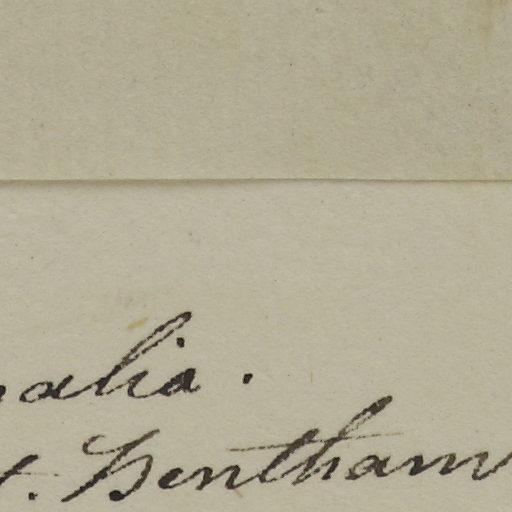 alia.
. Bentham